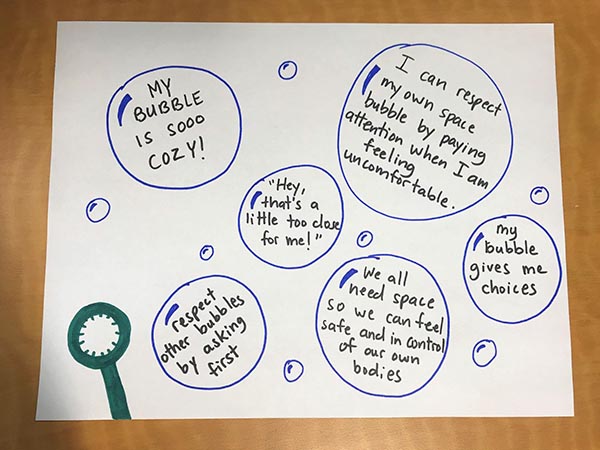 MY
BUBBLE
IS SOOO
COZY!
I can respect
my own space
bubble by paying
attention when I am
feeling
uncomfortable.
"Hey,
that's a
little too close
for me!"
my
bubble
gives me
choices
respect
other bubbles
by asking
first
We all
need space
so we can feel
safe and in control
of our own
bodies